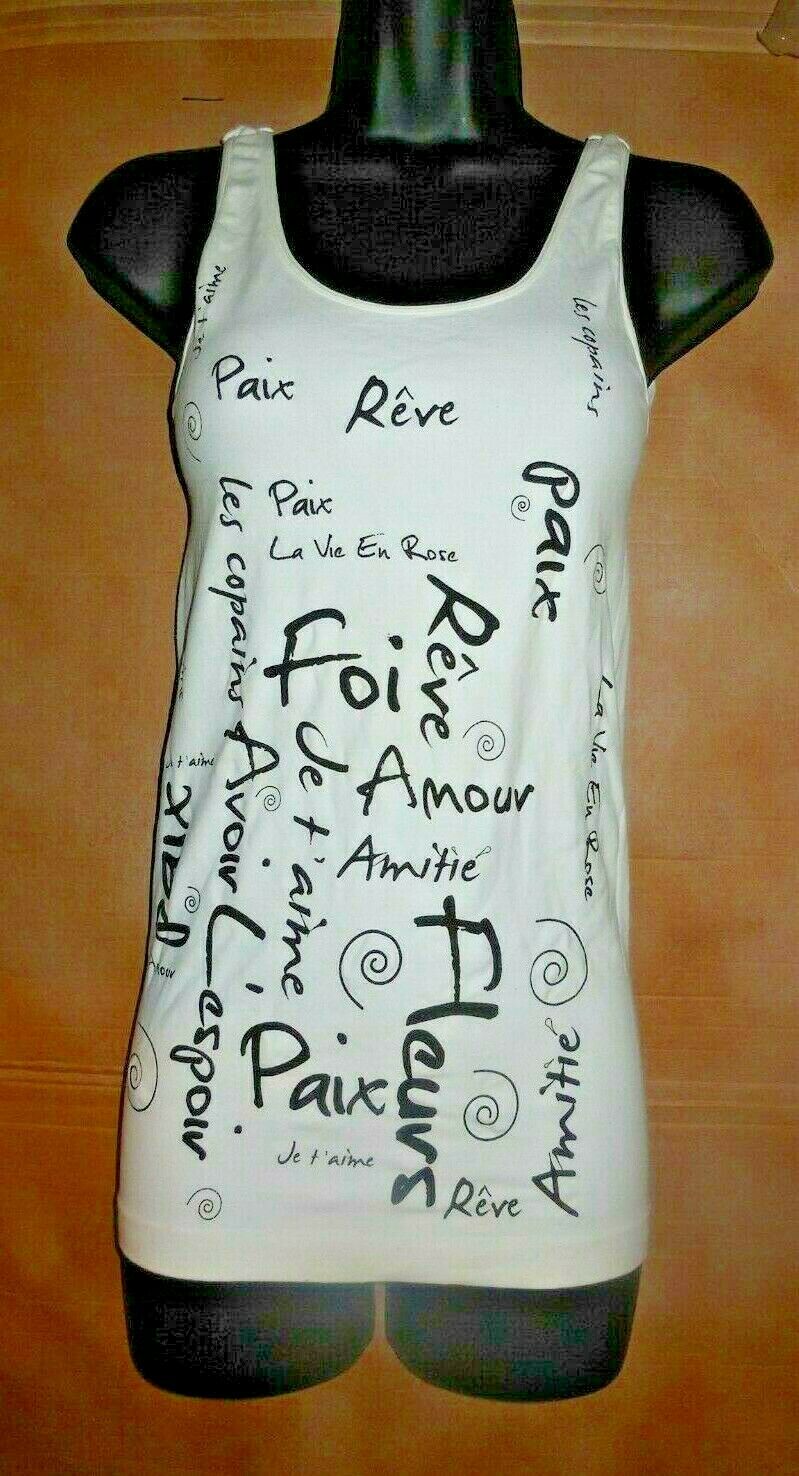 Je t'aime
les copains
Paix
Rêve
Paix
les copains
Paix
La Vie En Rose
Rêve
Foi
La Vie En Rose
Je t'aime
Avoir
Amour
t'aime
Paix
Amitié
Fleurs
L'espoir
Amitié
Paix
Je t'aime
Rêve